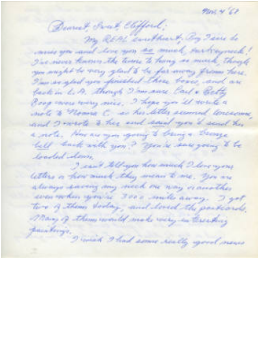 Nov. 4 '68
Dearest, Sweet Clifford,
My REAL sweetheart. My I sure do
miss you and love you so much,
I've never known the time to being so much, though
you might be very glad to be far away from here.
I'm so glad you finished then book, and are
back in L.A. though I'm sure Carl & Betty
Ring were very nice. I hope you'll write a
note to Thomas C. as his letter seemed
and I wrote to him and said you'd send him
a note. How are you going to bring a
bell back with you? You're sure going to be
loaded down.
I can't tell you how much I love your
letters or how much they mean to me. You are
always saving my neck one way or another
even when you're 3000 miles away. I got
two of them today, and loved the postcards.
Many of them would make very interesting
paintings.
I wish I had some really good news